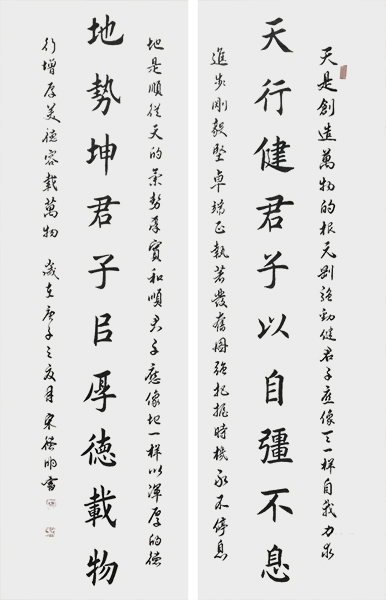 天是創造萬物的根元剛強勁健君子應像天一樣自我力求
天行健君子以自彊不息
進步剛毅堅卓端正執著發奮圖強把握時機永不停息
地是順從天的氣勢厚實和順君子應像地一樣以渾厚的德
地勢坤君子㠯厚德載物
行增厚美德容載萬物 歲在庚子之夏月宋明書